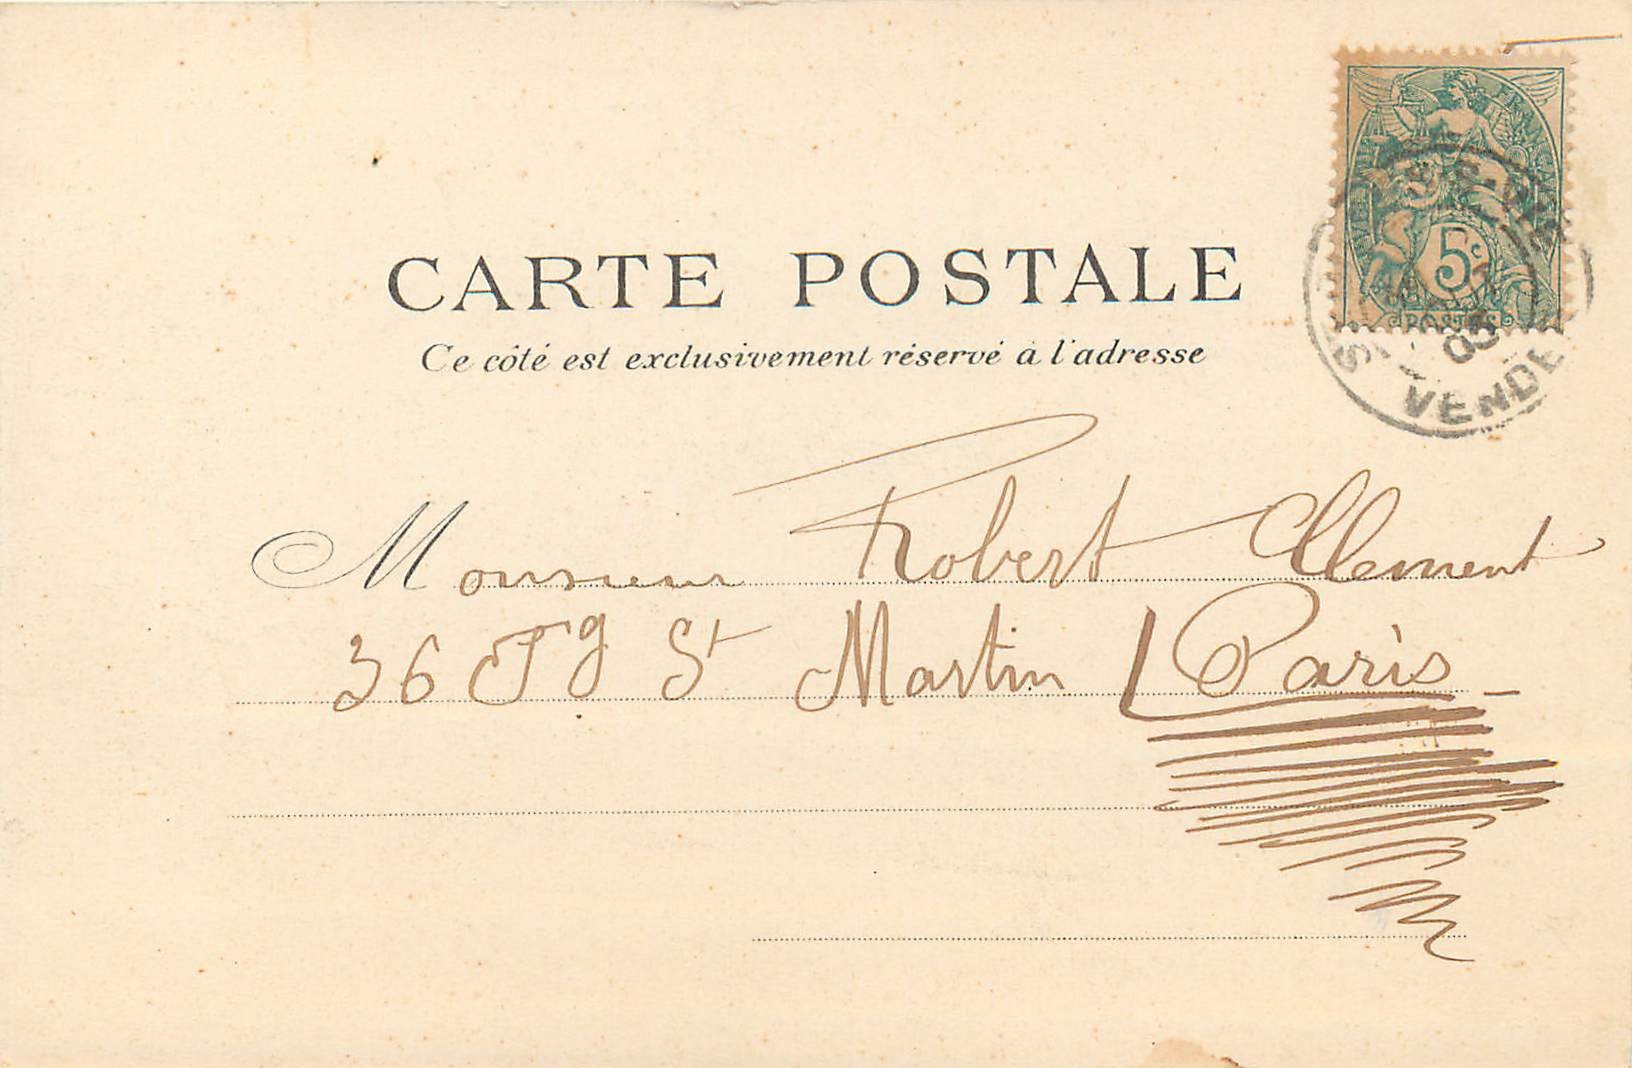 CARTE POSTALE
Ce côté est exclusivement réservé à l'adresse
FRANÇAISE
5c
POSTES
03
VENDE
Monsieur Robert Clement
36 Fg St Martin Paris